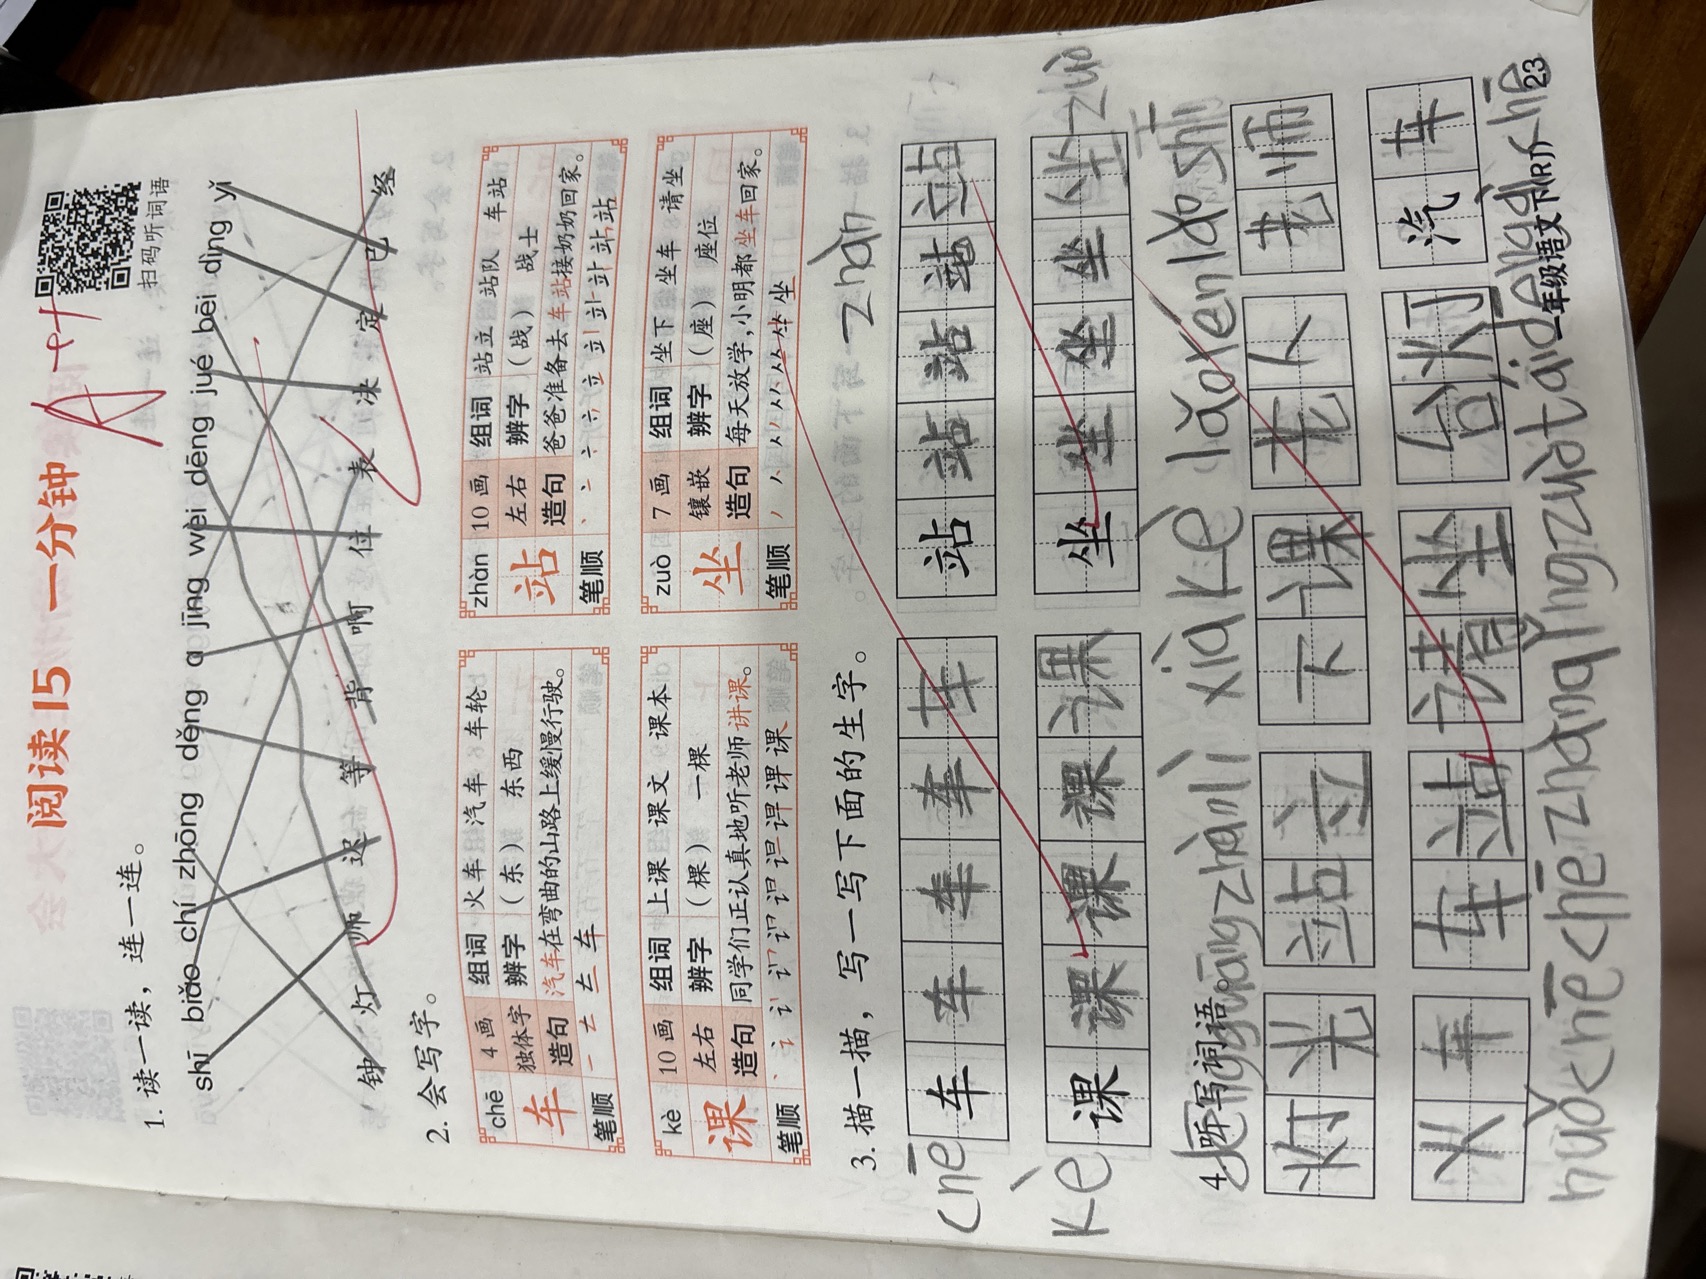 阅读15 一分钟
A++
扫码听词语
1. 读一读，连一连。
shī biǎo chí zhōng děng a jīng wèi dēng jué bēi dìng yǐ
钟 灯 师 迟 等 背 啊 位 表 决 定 已 经
2. 会写字。
chē 4画 组词 火车 汽车 车轮
车 独体字 辨字 （东） 东西
造句 汽车在弯曲的山路上缓慢行驶。
笔顺 一 𠂉 车
zhàn 10画 组词 站立 站队 车站
站 左右 辨字 （战） 战士
造句 爸爸准备去车站接奶奶回家。
笔顺 站 站
kè 10画 组词 上课 课文 课本
课 左右 辨字 （棵） 一棵
造句 同学们正认真地听老师讲课。
笔顺 课 课
zuò 7画 组词 坐下 坐车 请坐
坐 镶嵌 辨字 （座） 座位
造句 每天放学，小明都坐车回家。
笔顺 坐
3. 描一描，写一写下面的生字。
chē 车 车 车 车 车
站 站 站 站 站 zhàn
kè 课 课 课 课 课
坐 坐 坐 坐 坐 zuò
4. 听写词语。
dēng guāng zhàn lì xià kè lǎo rén lǎo shī
灯光 站立 下课 老人 老师
火车 车站 请坐 台灯 汽车
huǒ chē chē zhàn qǐng zuò tái dēng qì chē
一年级语文下(RJ)
23